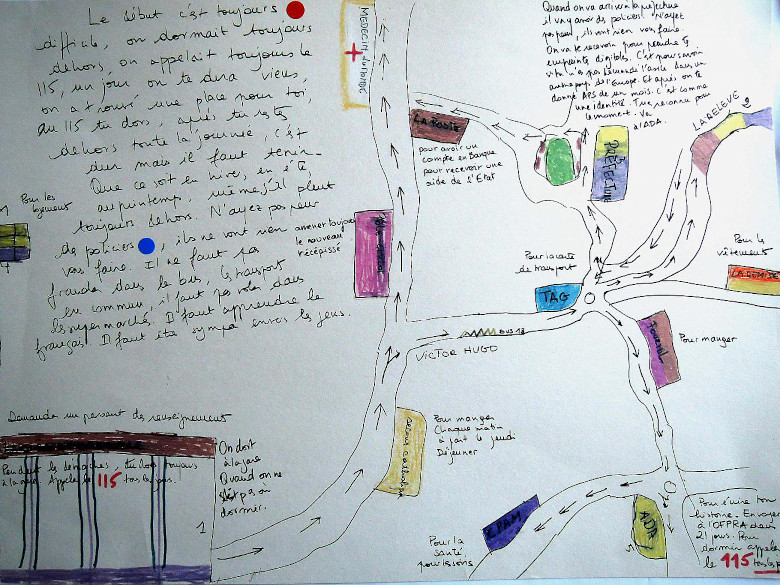 Le début c'est toujours
difficile, on dormait toujours
dehors, on appelait toujours le
115, un jour on te dira viens,
on a trouvé une place pour toi
au 115 tu dors, après tu restes
dehors toute la journée, c'est
dur mais il faut tenir.
Que ce soit en hiver, en été,
au printemps, même s'il pleut
toujours dehors. N'ayez pas peur
de policiers, ils ne vont rien
vous faire. Il ne faut pas
frauder dans le bus, les transport
en commun, il faut pas voler dans
les supermarché. Il faut apprendre le
français. Il faut être sympa envers les gens.
MEDECIN du monde
Quand on va arriver à la préfecture
il va y avoir des policiers. N'ayez
pas peur, ils vont rien vous faire.
On va te recevoir pour prendre tes
empreinte digitales. C'est pour savoir
si tu n'as pas demandé l'asile dans un
autre pays de l'Europe. Et après on te
donne APS de un mois. C'est comme
une identité. Tu es reconnu pour
le moment. Va
à l'ADA.
LA RELEVE
2
LA Poste
pour avoir un
compte en Banque
pour recevoir une
aide de l'Etat
3
PREFECTURE
Pour les
amener toujours
le nouveau
récépissé
Pour la carte
de transport
TAG
Pour le
vêtement
LA REMISE
BUS 13
VICTOR HUGO
Pour manger
Demander un passant des renseignement
On doit
à la gare
Quand on ne
sait pas où
dormir.
115
1
Secours catholique
Pour manger
Chaque matin
à part le jeudi
Déjeuner
Pour la
santé,
pour les soins
ADA
5
Pour écrire ton
histoire. Envoyer
à l'OFPRA dans
21 jours. Pour
dormir appeler
le 115